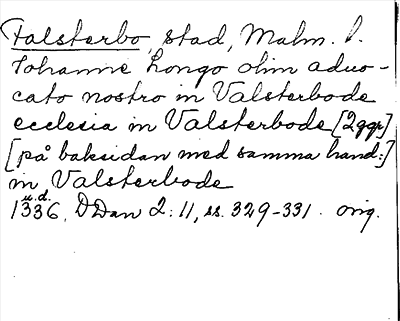 Falsterbo, stad, Malm. l.
Johanne Longo olim aduo-
cato nostro in Valsterbode
ecclesia in Valsterbode [2ggr]
[på baksidan med samma hand:]
in Valsterbode
u.d.
1336. DDan 2:11, ss. 329-331. orig.